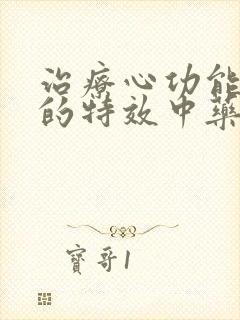 治療心功能
的特效中藥
寶哥1